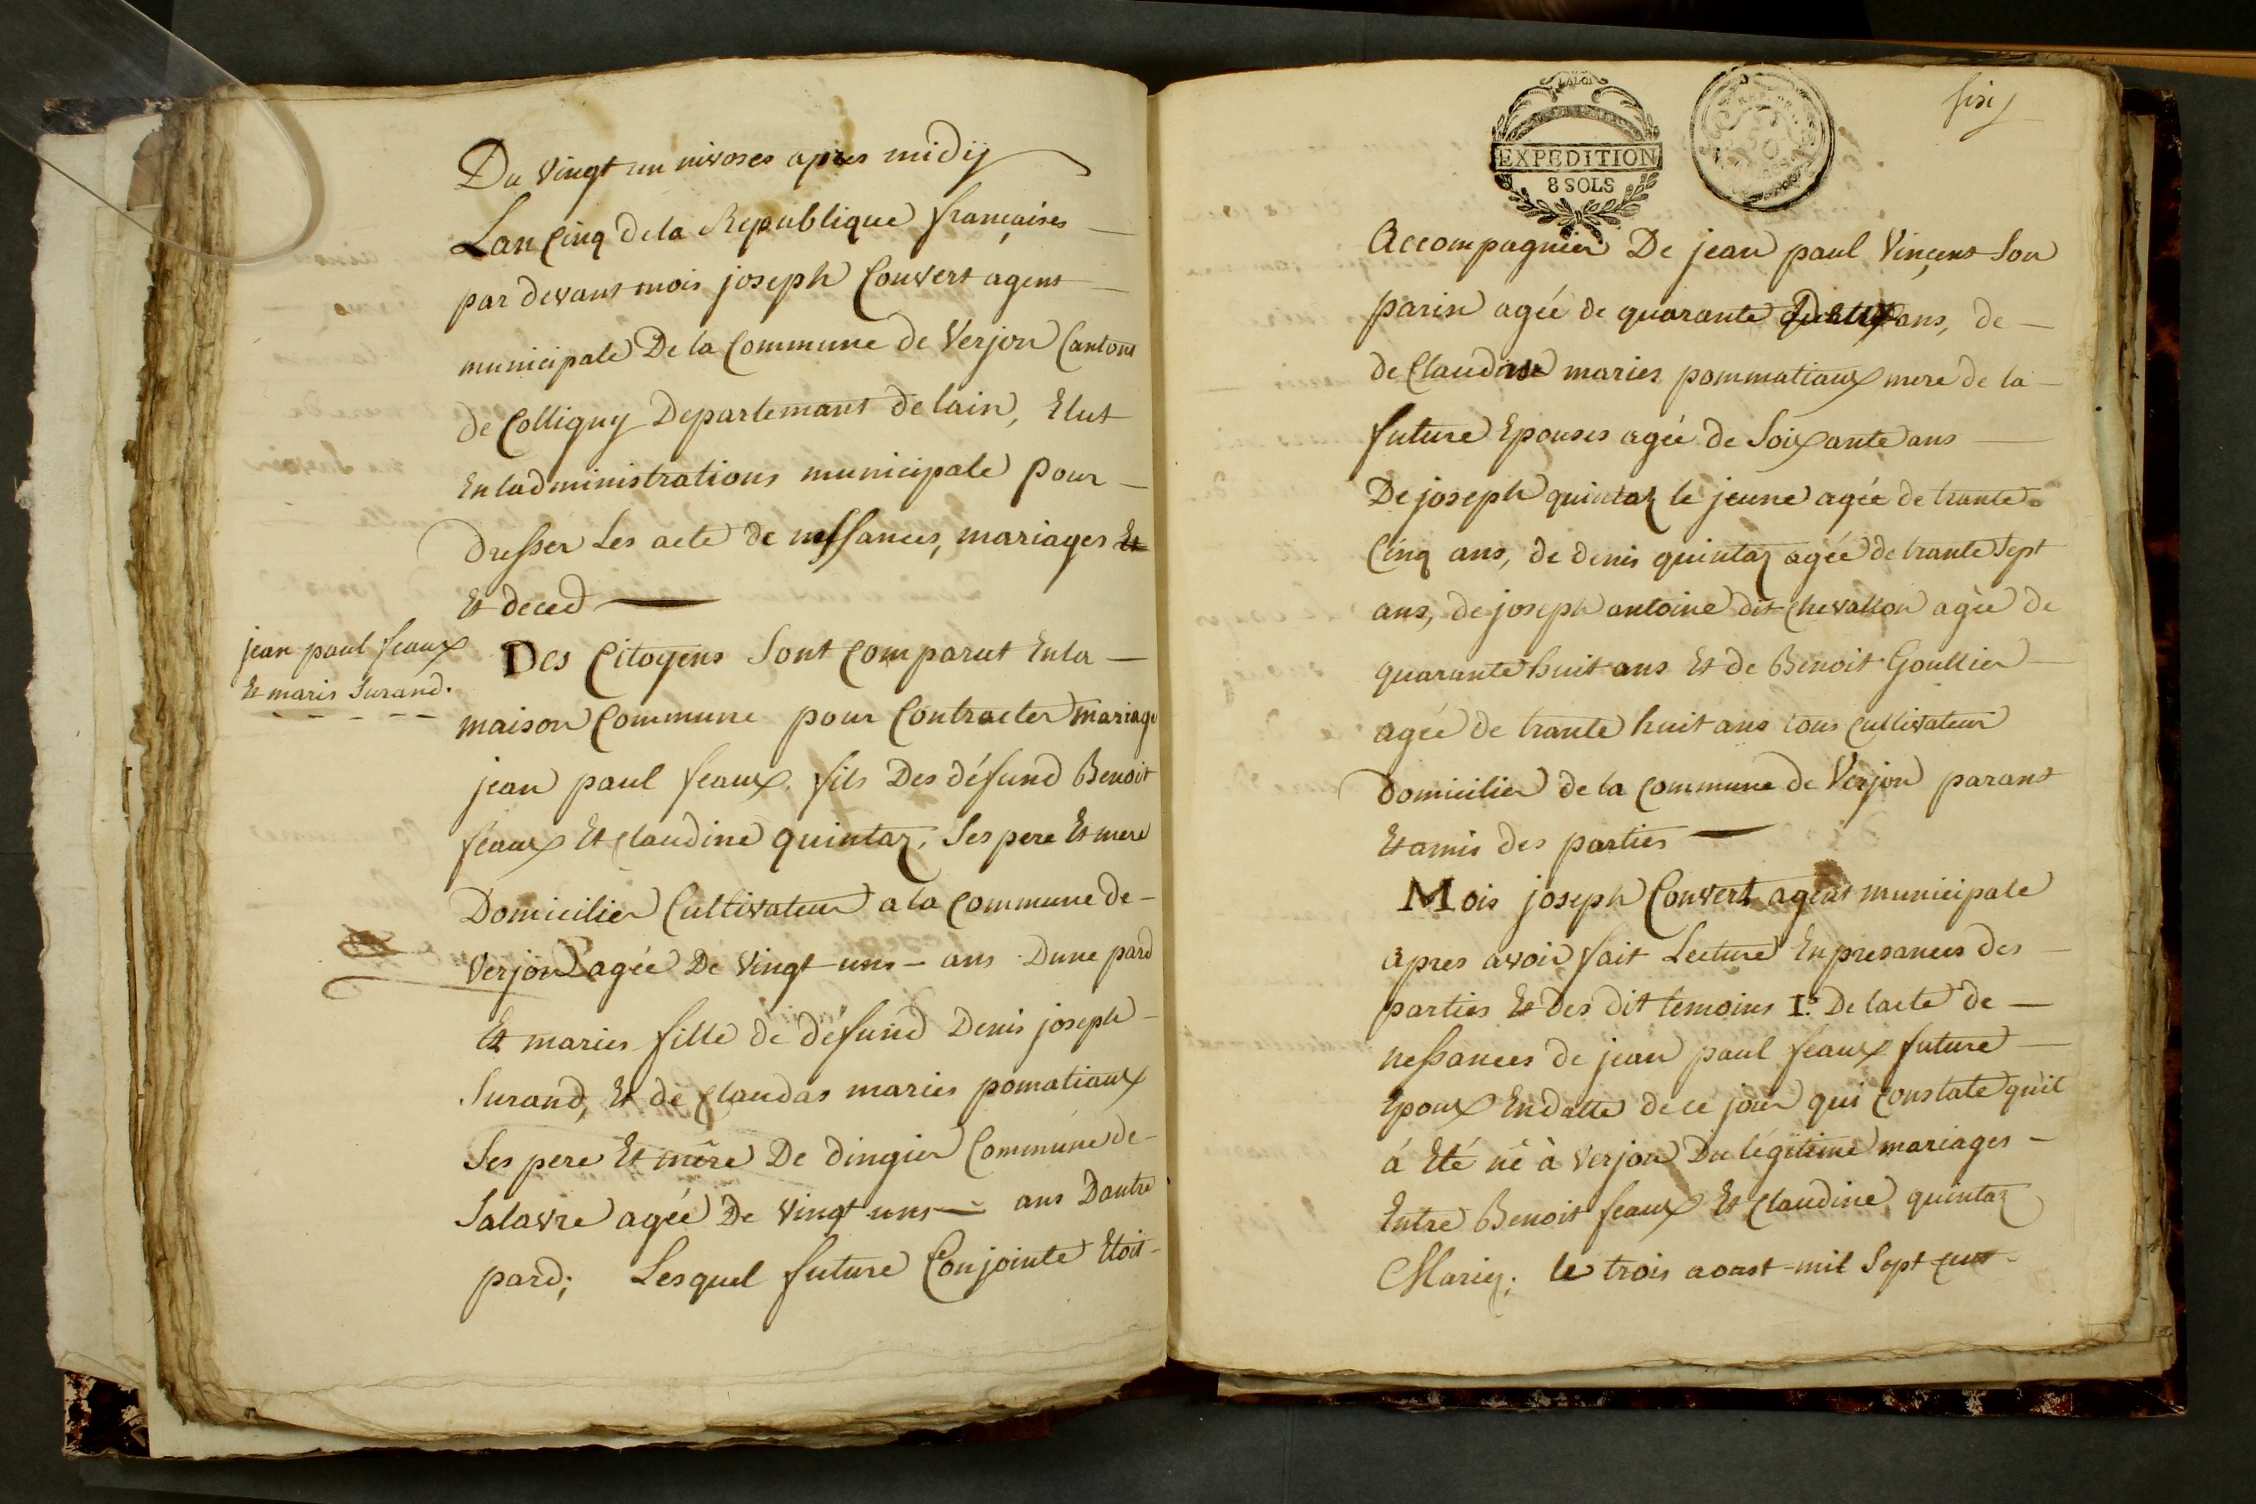 Du vingt un nivoses apres midij
Lan Cinq dela Republique françaises
par devant mois joseph Convert agent
municipale De la Commune de Verjon Cantons
de Colligny Departemant de lain, Elut
En ladministrations municipale pour
dresser Les acte de nessances, mariages Et
Et deced
jean paul feaux
Et maris Surand.
Des Citoyens Sont Comparut Enla
maison Commune pour Contracter mariage
jean paul feaux fils Des défund Benoit
feaux Et Claudine quintaz, Ses pere Et mere
Domicilier Cultivateur a la Commune de
Verjon agée De vingt uns ans Dune pard
Et maries fille de défund Denis joseph
Surand, Et de Claudas maries pomatiaux
Ses pere Et mêre De dingier Commune de
Salavre agée De vingt uns ans Dautre
pard; Lesquel future Conjointe Etoit
LA LOI
EXPEDITION
8 SOLS
REP. FR.
six
Accompagnier De jean paul Vinçent Son
parin agée de quarante ans, de
de Claudine maries pommatiaux mere de la
future Epouses agée de Soixante ans
De joseph quintaz le jeune agée de trante
Cinq ans, de denis quintaz agée de trante Sept
ans, de joseph antoine dit Chevallon agée de
quarante huit ans Et de Benoit Goullier
agée de trante huit ans tous Cultivateur
Domicilier de la Commune de Verjon parant
Et amis des parties
Mois joseph Convert agent municipale
apres avoir fait Lecture En presances des
parties Et Des dit temoins I.° De lacte de
nessances de jean paul feaux future
Epoux En datte de ce jour qui Constate quil
á Eté né à Verjon Du légitime mariages
Entre Benoit feaux Et Claudine quintaz
Mariez; le trois aoust mil Sept cent